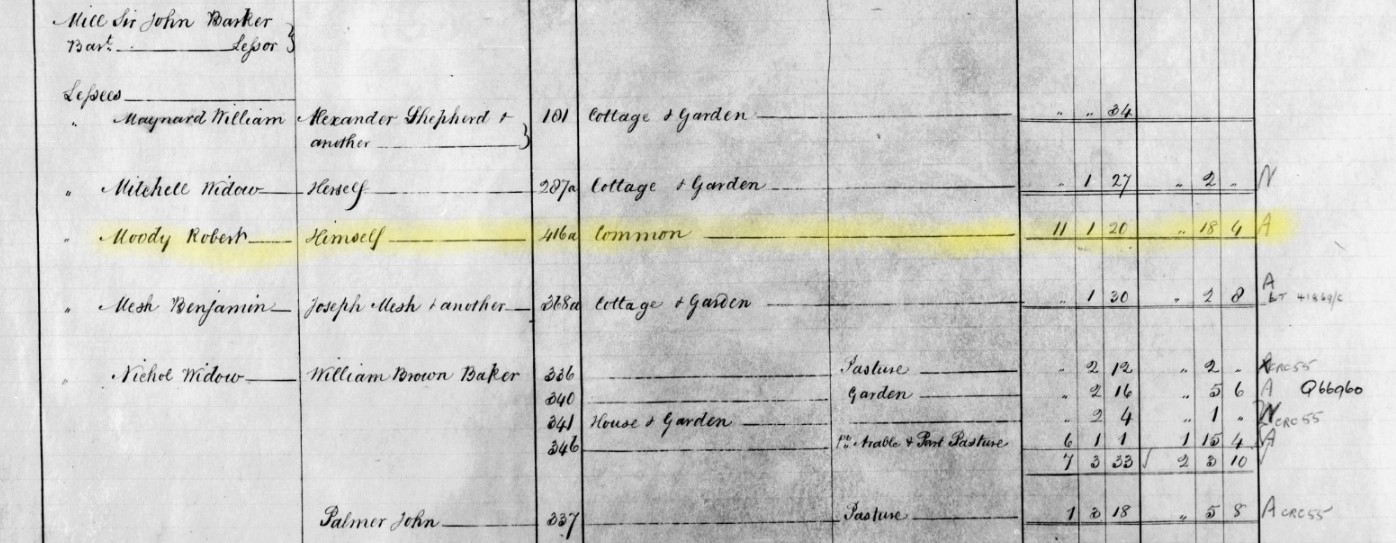 Mill Sir John Barker
Bart. Lessor }
Lessees
" Maynard William Alexander Shepherd & 181 Cottage & Garden " " 34
another }
" Mitchell Widow Herself 287a Cottage & Garden " 1 27 " 2 " N
" Moody Robert Himself 416a Common 11 1 20 " 18 4 A
" Mesh Benjamin Joseph Mesh & another 368a Cottage & Garden " 1 30 " 2 8 A
" Nichol Widow William Brown Baker 336 Pasture " 2 12 " 2 " CRC55
340 Garden " 2 16 " 5 6 A Q66960
341 House & Garden " 2 4 " 1 " N CRC55
346 Pt. Arable & Part Pasture 6 1 1 1 15 4 A
7 3 33 2 3 10
Palmer John 337 Pasture 1 3 18 " 5 8 A CRC55